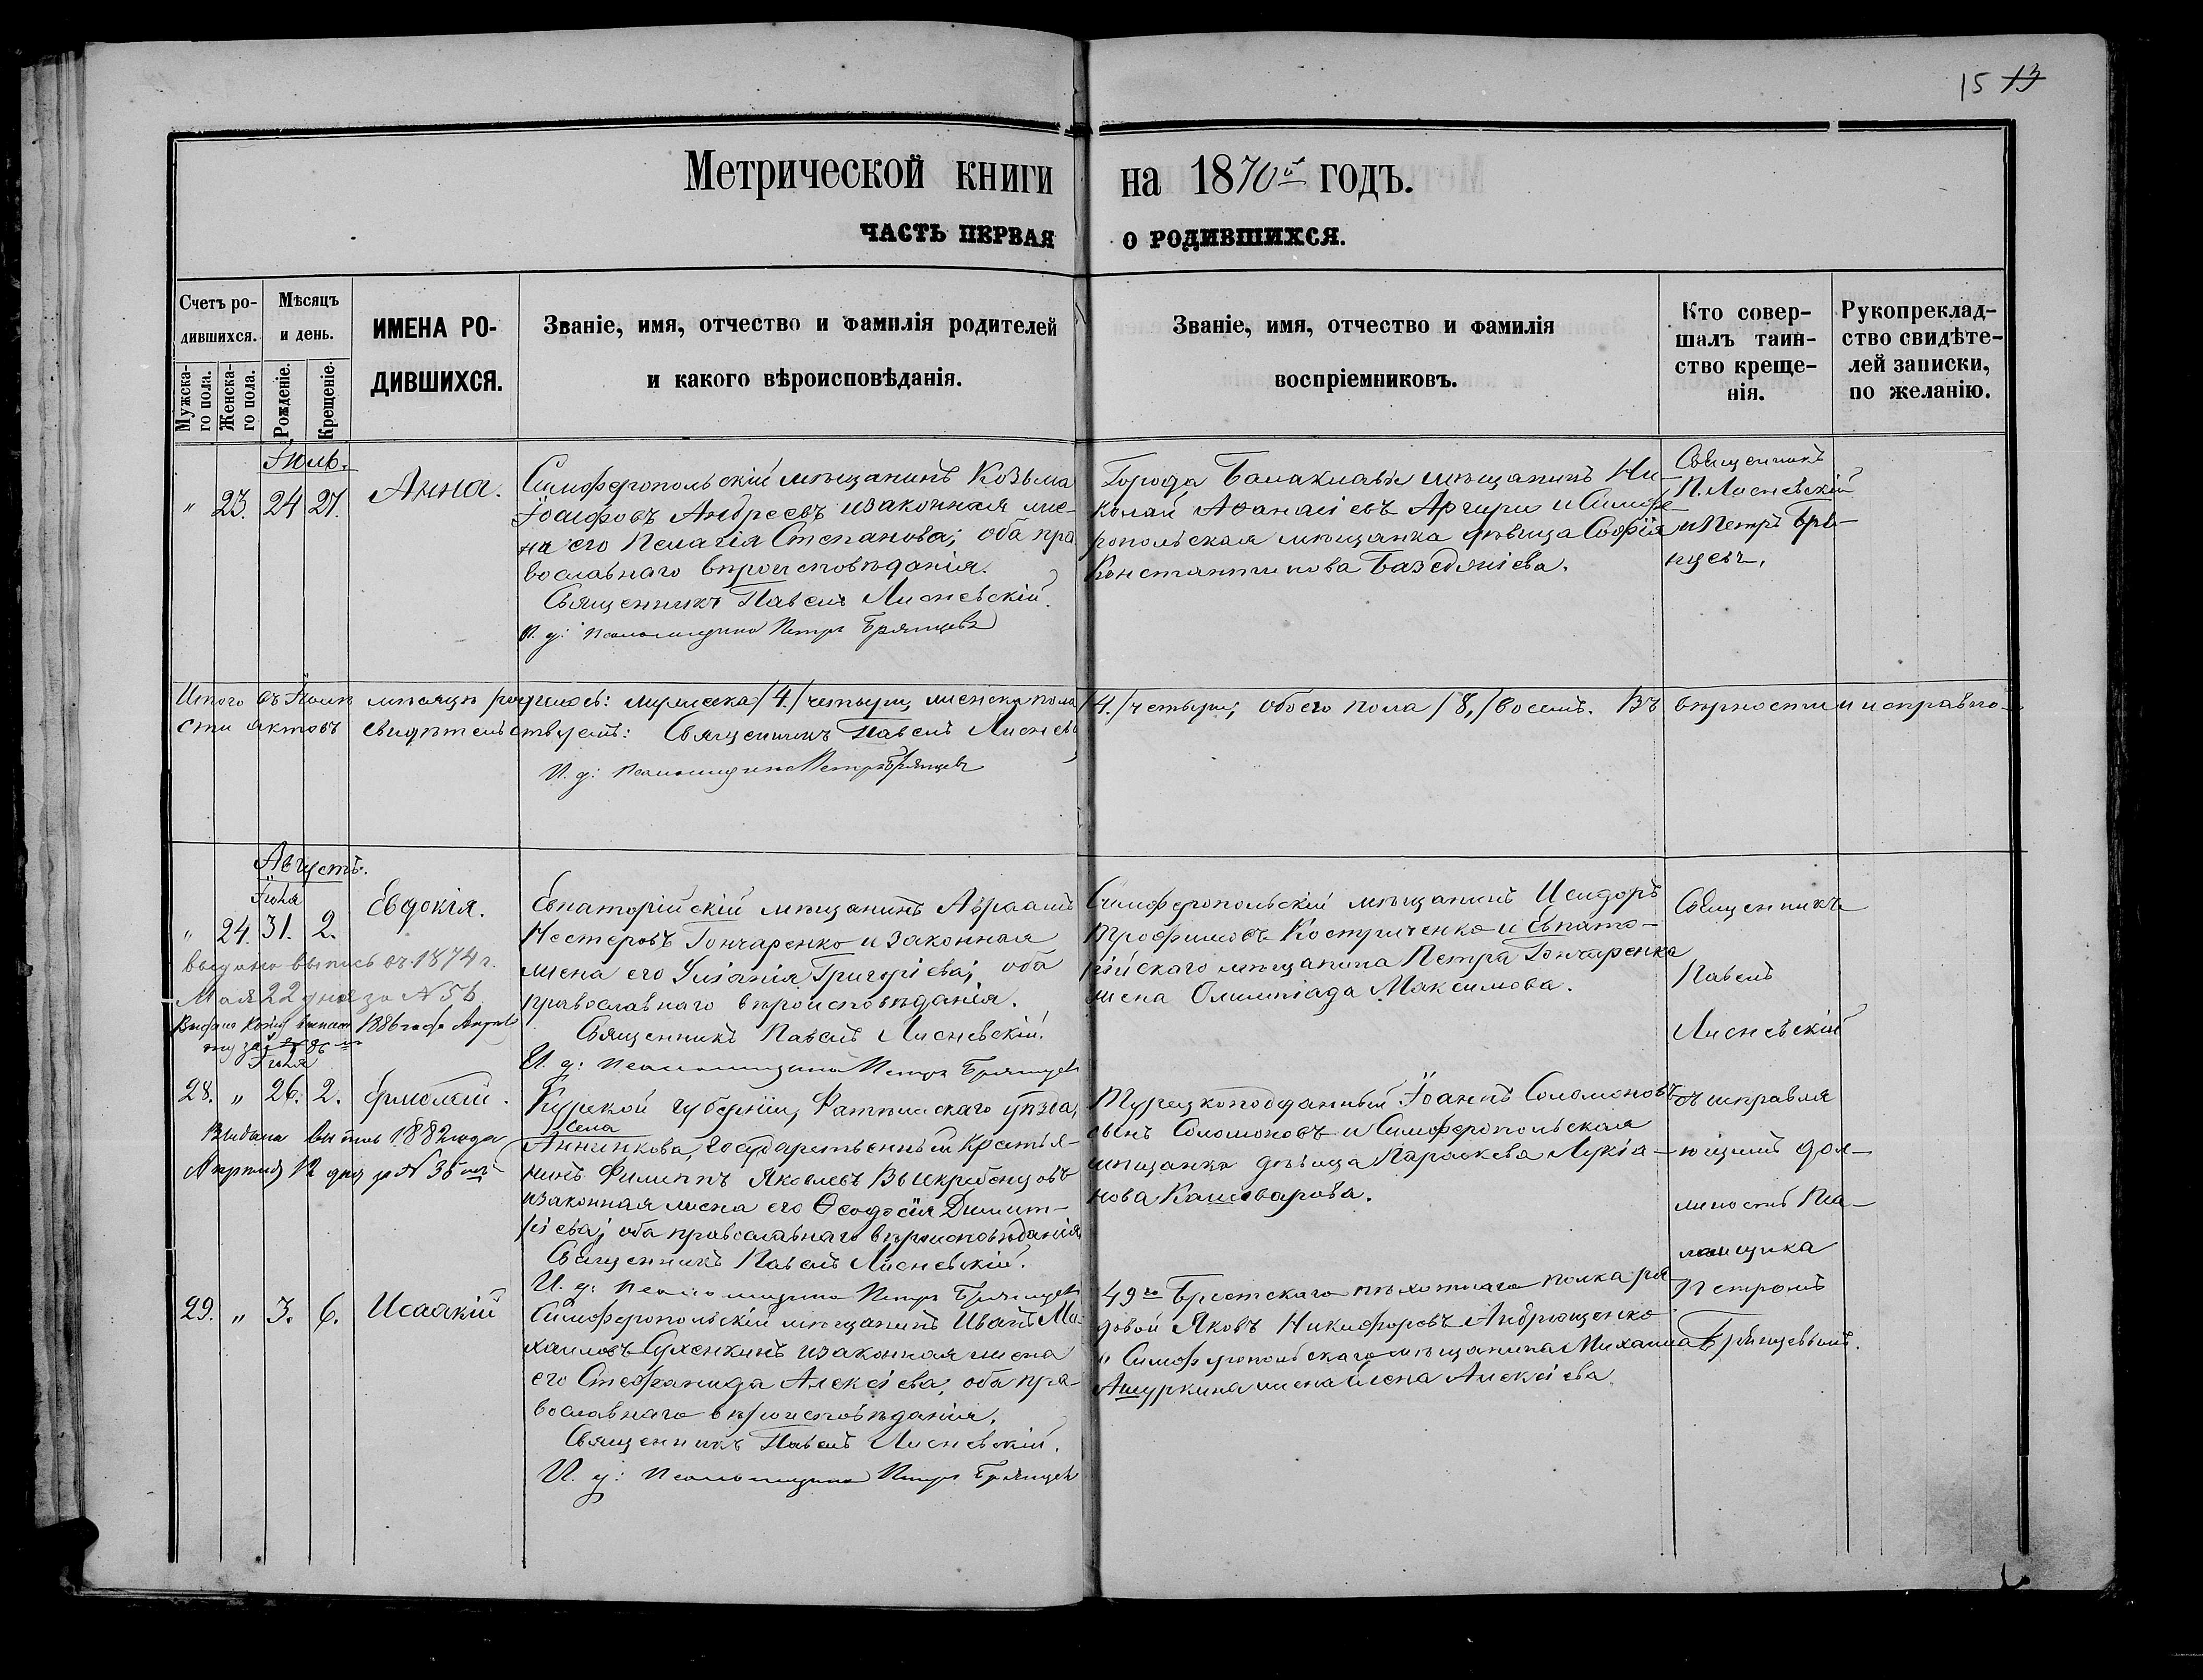 15 13
Метрической книги на 1870й годъ.
ЧАСТЬ ПЕРВАЯ О РОДИВШИХСЯ.
Счетъ ро-
дившихся.
Мужска-
го пола.
Женска-
го пола.
Мѣсяцъ
и день.
Рожденіе.
Крещеніе.
ИМЕНА РО-
ДИВШИХСЯ.
Званіе, имя, отчество и фамилія родителей
и какого вѣроисповѣданія.
Званіе, имя, отчество и фамилія
воспріемниковъ.
Кто совер-
шалъ таин-
ство креще-
нія.
Рукоприклад-
ство свидѣте-
лей записки,
по желанію.
Іюль.
" 23. 24 27. Анна.
Симферопольскій мѣщанинъ Козьма
Іосифовъ Андреевъ и законная же-
на его Пелагія Степанова; оба пра-
вославнаго вѣроисповѣданія.
Священникъ Павелъ Лисневскій.
И. д: псаломщика Петръ Брянцевъ
Города Балаклавы мѣщанинъ Ни-
колай Афанасіевъ Аргири и Симфе-
ропольская мѣщанка дѣвица Софія
Константинова Базеджіева.
Священникъ
П. Лисневскій
и Петръ Бря-
нцевъ.
Итого въ Іюлѣ мѣсяцѣ родилось: мужеска /4./ четыре, женска пола /4./ четыре, обоего пола /8,/ восемь. Въ вѣрности и исправно-
сти актовъ свидѣтельствуемъ: Священникъ Павелъ Лисневскій
И. д: псаломщика Петръ Брянцевъ
Августъ.
Іюля
" 24. 31. 2. Евдокія.
выдана выпись въ 1874 г.
Мая 22 дня за N 56
1886 года
Евпаторійскій мѣщанинъ Авраамъ
Нестеровъ Гончаренко и законная
жена его Григоріева; оба
православнаго вѣроисповѣданія.
Священникъ Павелъ Лисневскій.
И. д: псаломщика Петръ Брянцевъ
Симферопольскій мѣщанинъ Исидоръ
Трофимовъ Костриченко и Евпато-
рійскаго мѣщанина Петра Гончаренка
жена Олимпіада Максимова.
Священникъ
Павелъ
Лисневскій
Іюля
28. " 26. 2. Ермолай.
Выдана выпись 1882 года
Апрѣля 12 дня за N 35
Курской губерніи, Фатежскаго уѣзда,
села
Анненкова, государственный крестья-
нинъ Филиппъ Яковлевъ Выскребенцовъ
и законная жена его Ѳеодосія Димит-
ріева; оба православнаго вѣроисповѣданія
Священникъ Павелъ Лисневскій.
И. д: псаломщика Петръ Брянцевъ
Турецкоподданный Іоаннъ Соломоновъ
сынъ Соломоновъ и Симферопольская
мѣщанка дѣвица Параскева Лукіа-
нова Кашеварова.
съ исправля
ющимъ дол-
жность Пса-
ломщика
Петромъ
Брянцевымъ.
29. " 3. 6. Исаакій
Симферопольскій мѣщанинъ Иванъ Ми-
хаиловъ Сухенкинъ и законная жена
его Стефанида Алексіева, оба пра-
вославнаго вѣроисповѣданія.
Священникъ Павелъ Лисневскій.
И. д: псаломщика Петръ Брянцевъ
49го Брестскаго пѣхотнаго полка ря-
довой Яковъ Никифоровъ Андрющенко
и Симферопольскаго мѣщанина Михаила
Ашуркина жена Елена Алексіева.